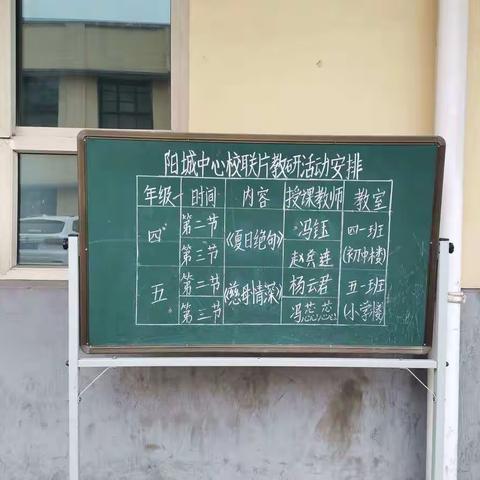 阳城中心校联片教研活动安排
年级 时间 内容 授课教师 教室
四 第二节 《夏日绝句》 冯钰 四一班
第三节 赵兵连 (初中楼)
五 第二节 《慈母情深》 杨云君 五一班
第三节 冯蕊蕊 (小学楼)